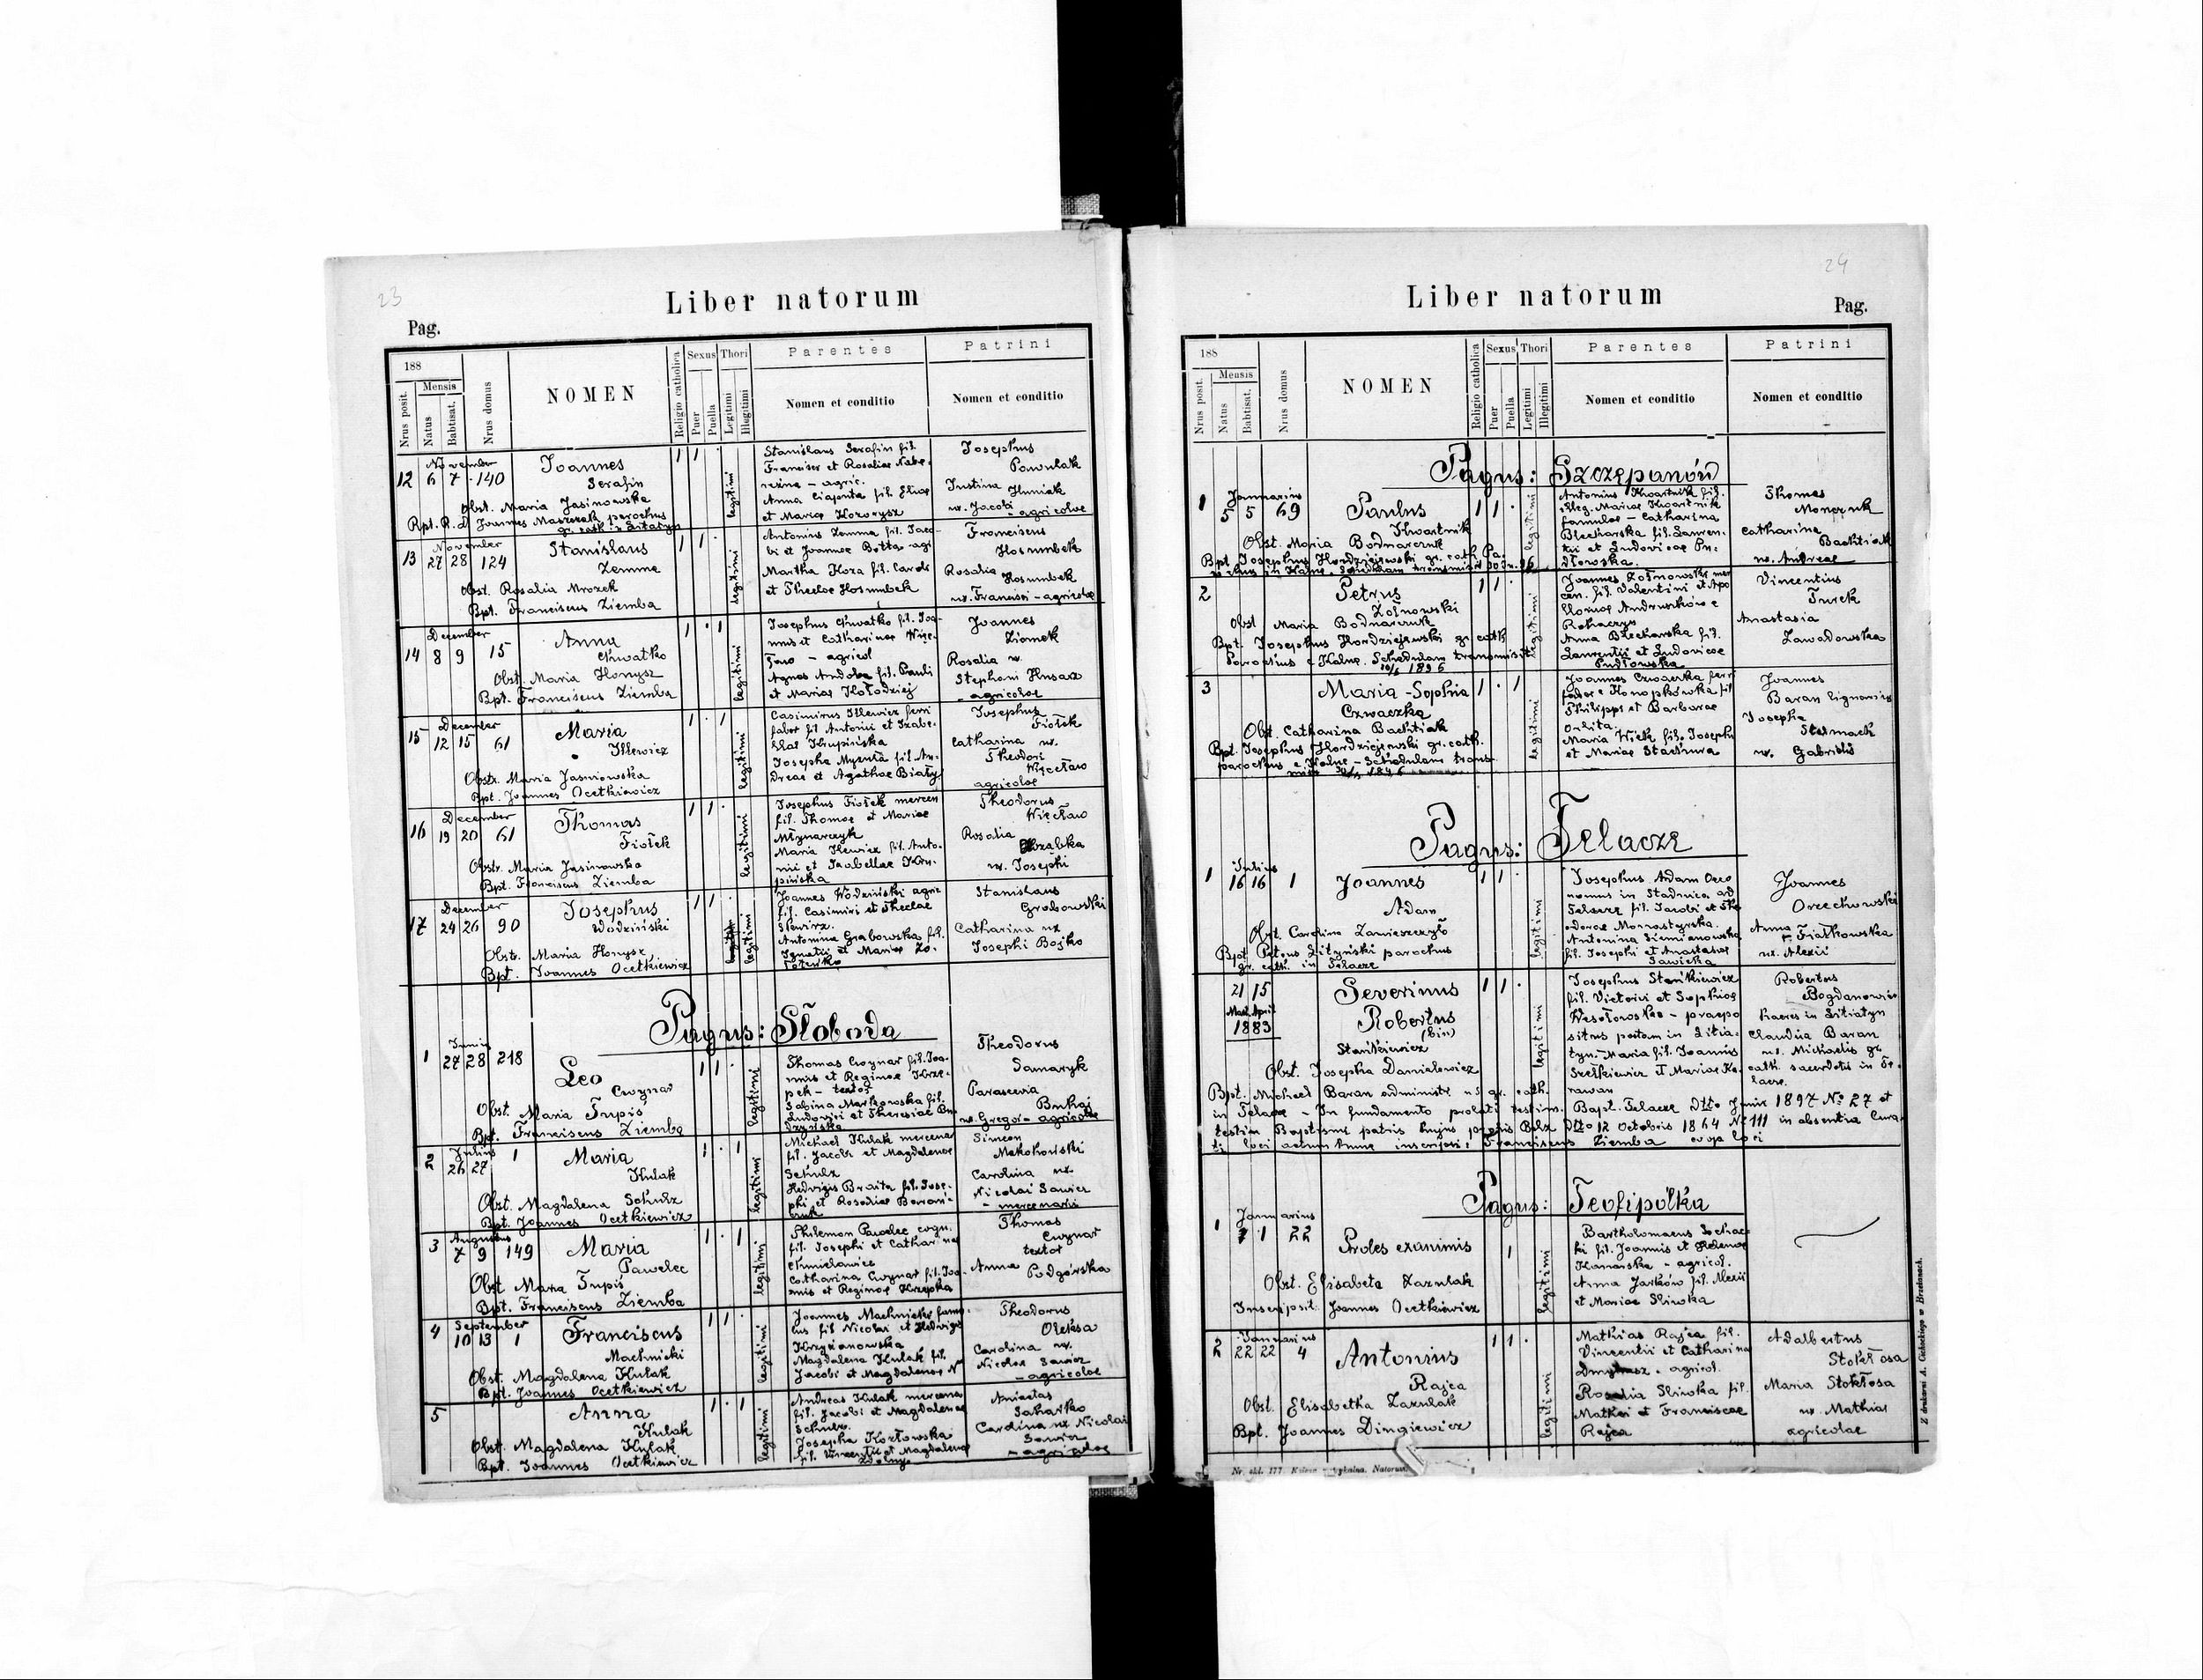 23
Liber natorum
Pag.
188
Mensis
Nrus posit.
Natus
Babtisat.
Nrus domus
NOMEN
Religio catholica
Sexus
Puer
Puella
Thori
Legitimi
Illegitimi
Parentes
Nomen et conditio
Patrini
Nomen et conditio
November
12 6 7 140
Joannes
Serafin
Obst. Maria Jasinowska
legitimi
Stanislaus Serafin fil.
et Mariae
Josephus
Pawulak
Justina Huniak
ux. Jacobi
- agricolae
November
13 27 28 124
Stanislaus
Zemma
Obst. Rosalia Mrozek
Bpt. Franciscus Ziemba
legitimi
Antonius Zemma fil. Jaco-
bi et Joannae Botta - agr
Martha Koza fil. Caroli
et Theclae Hosumbek
Franciscus
Hosumbek
Rosalia
Hosumbek
ux. Francisci - agricolae
December
14 8 9 15
Anna
Chwatko
Obst. Maria Honysz
Bpt. Franciscus Ziemba
legitimi
Josephus Chwatko fil. Joa-
nnis et Catharinae Więc-
ław - agricol
Agnes fil. Pauli
et Mariae Kołodziej
Joannes
Ziomek
Rosalia ux.
Stephani Husarz
- agricolae
December
15 12 15 61
Maria
Illewicz
Obstr. Maria Jasinowska
Bpt. Joannes Ocetkiewicz
legitimi
Casimirus Illewicz ferri
faber fil. Antonii et Izabe-
llae Krupińska
Josepha fil. An-
dreae et Agathae Biały
Josephus
Fiołek
Catharina ux.
Theodori
Więcław
agricolae
December
16 19 20 61
Thomas
Fiołek
Obstr. Maria Jasinowska
Bpt. Franciscus Ziemba
legitimi
Josephus Fiołek mercen
fil. Thomae et Mariae
Młynarczyk
Maria Ilewicz fil. Anto-
nii et Isabellae Kru-
pińska
Theodorus
Więcław
Rosalia
ux. Josephi
December
17 24 26 90
Josephus
Wodziński
Obstr. Maria Honysz
Bpt. Joannes Ocetkiewicz
legitimi
Joannes Wodziński agric
fil. Casimiri et Theclae
Antonina Grabowska fil.
Ignatii et Mariae
Stanislaus
Grabowski
Catharina ux
Josephi Bojko
Pagus: Słoboda
Junius
1 27 28 218
Leo
Cwynar
Obst. Maria Trupiś
Bpt. Franciscus Ziemba
legitimi
Thomas Cwynar fil. Joa-
nnis et Reginae Krze-
pek - textor
Sabina Markowska fil.
Ludovici et Theresiae
Theodorus
Samaryk
Parascevia
ux. Gregor - agricolae
Julius
2 26 27 1
Maria
Kulak
Obst. Magdalena Schulz
Bpt. Joannes Ocetkiewicz
legitimi
Michael Kulak mercena
fil. Jacobi et Magdalenae
Schulz
Hedvigis Braita fil. Jose-
phi et Rosaliae
Simeon
Mokohoński
Carolina ux.
Nicolai Sawicz
- mercenarii
Augustus
3 7 9 149
Maria
Pawelec
Obst. Maria Trupiś
Bpt. Franciscus Ziemba
legitimi
Philemon Pawelec
fil. Josephi et Catharinae
Chmielowicz
Catharina Cwynar fil. Joa-
nnis et Reginae Krzepka
Thomas
Cwynar
textor
Anna
Podgórska
September
4 10 13 1
Franciscus
Machnicki
Obst. Magdalena Kulak
Bpt. Joannes Ocetkiewicz
legitimi
Joannes Machnicki famu-
lus fil. Nicolai et Hedvigis
Krzyżanowska
Magdalena Kulak fil.
Jacobi et Magdalenae
Theodorus
Oleksa
Carolina ux.
Nicolae Sawicz
- agricolae
5
Anna
Kulak
Obst. Magdalena Kulak
Bpt. Joannes Ocetkiewicz
legitimi
Andreas Kulak mercena
fil. Jacobi et Magdalenae
Schulz
Josepha Kozłowska
fil. Vincentii et Magdalena
Anicetas
Carolina ux Nicolai
Sawicz
- agricolae
24
Liber natorum
Pag.
188
Mensis
Nrus posit.
Natus
Babtisat.
Nrus domus
NOMEN
Religio catholica
Sexus
Puer
Puella
Thori
Legitimi
Illegitimi
Parentes
Nomen et conditio
Patrini
Nomen et conditio
Pagus: Szczepanów
Januarius
1 5 5 69
Paulus
Kwartnik
Obst. Maria Bodnarczuk
Bpt. Josephus Hordziejewski gr. cath. Pa-
legitimi
Antonius Kwartnik fil.
illeg. Mariae Kwartnik
famulus - Catharina
Blecharska fil. Lauren-
tii et Ludovicae Pu-
dłowska.
Thomas
Catharina
Bachtiak
ux. Andreae
2
Petrus
Zołnowski
Obst Maria Bodnarczuk
Bpt. Josephus Hordziejewski gr. cath
Parochus e Kalne. Schedulam transmisit
1896
legitimi
Joannes Zołnowski mer
cen. fil. Valentini et Apo
lloniae Andruszków e
Rohaczyn
Anna Blecharska fil.
Laurentii et Ludovicae
Pudłowska
Vincentius
Turek
Anastasia
Zawadowska
3
Maria-Sophia
Czwaczka
Obst. Catharina Bachtiak
Bpt. Josephus Hordziejewski gr. cath.
parochus e Kalne - Schedulam trans-
legitimi
Joannes Czwaczka ferri
faber e Konopkówka fil
Philippi et Barbarae
Maria Wilk fil. Josephi
et Mariae Stachura
Joannes
Baran
Josepha
Stelmach
ux. Gabrielis
Pagus: Telacze
Julius
1 16 16 1
Joannes
Adam
Obst. Carolina
Bpt Petrus Lityński parochus
gr. cath. in Telacze
legitimi
Josephus Adam Oeco
nomus in Stadnica ad
Telacze fil. Jacobi et The
odorae Monastyrska.
Antonina Siemianowska
fil. Josephi et Anastasiae
Sawicka
Joannes
Orzechowski
Anna
Fiałkowska
ux. Alexii
21 15
Mart. April
1883
Severinus
Robertus
(bin)
Stańkiewicz
Obst. Josepha Danilewicz
legitimi
Josephus Stańkiewicz
fil. Victorii et Sophiae
Wesołowska - praepo
situs postam in Litia-
tyn. Maria fil. Joannis
Szelkiewicz et Mariae Ka-
rawan
Robertus
Bogdanowicz
haeres in Litiatyn
Claudia Baran
ux. Michaelis gr.
cath. sacerdotis in Te-
lacze.
Bpt. Michael Baran administr gr. cath.
in Telacze - In fundamento prolati testim. Bapt. Telacze Dtto Junii 1897 No 27 et
testim Baptismi patris hujus prolis Belz Dtto 12 Octobris 1864 No 111 in absentia Cura-
ti loci actum hunc inscripsi: Franciscus Ziemba coop loci
Pagus: Teofipólka
Januarius
1 1 1 22
Proles exanimis
Obst. Elisabeta Zazulak
Inser posit. Joannes Ocetkiewicz
legitimi
Bartholomaeus Sochac-
ki fil. Joannis et Helenae
Kanarska - agricol.
Anna Jarków fil. Alexii
et Mariae Sliwka
Januarius
2 22 22 4
Antonius
Rajca
Obst. Elisabetha Zazulak
Bpt. Joannes Dingiewicz
legitimi
Mathias Rajca fil.
Vincentii et Catharina
- agricol.
Rosalia Sliwka fil.
Mathei et Franciscae
Rajca
Adalbertus
Stokłosa
Maria Stokłosa
ux. Mathiae
agricolae
Z drukarni A. Cichockiego w Brzeżanach.